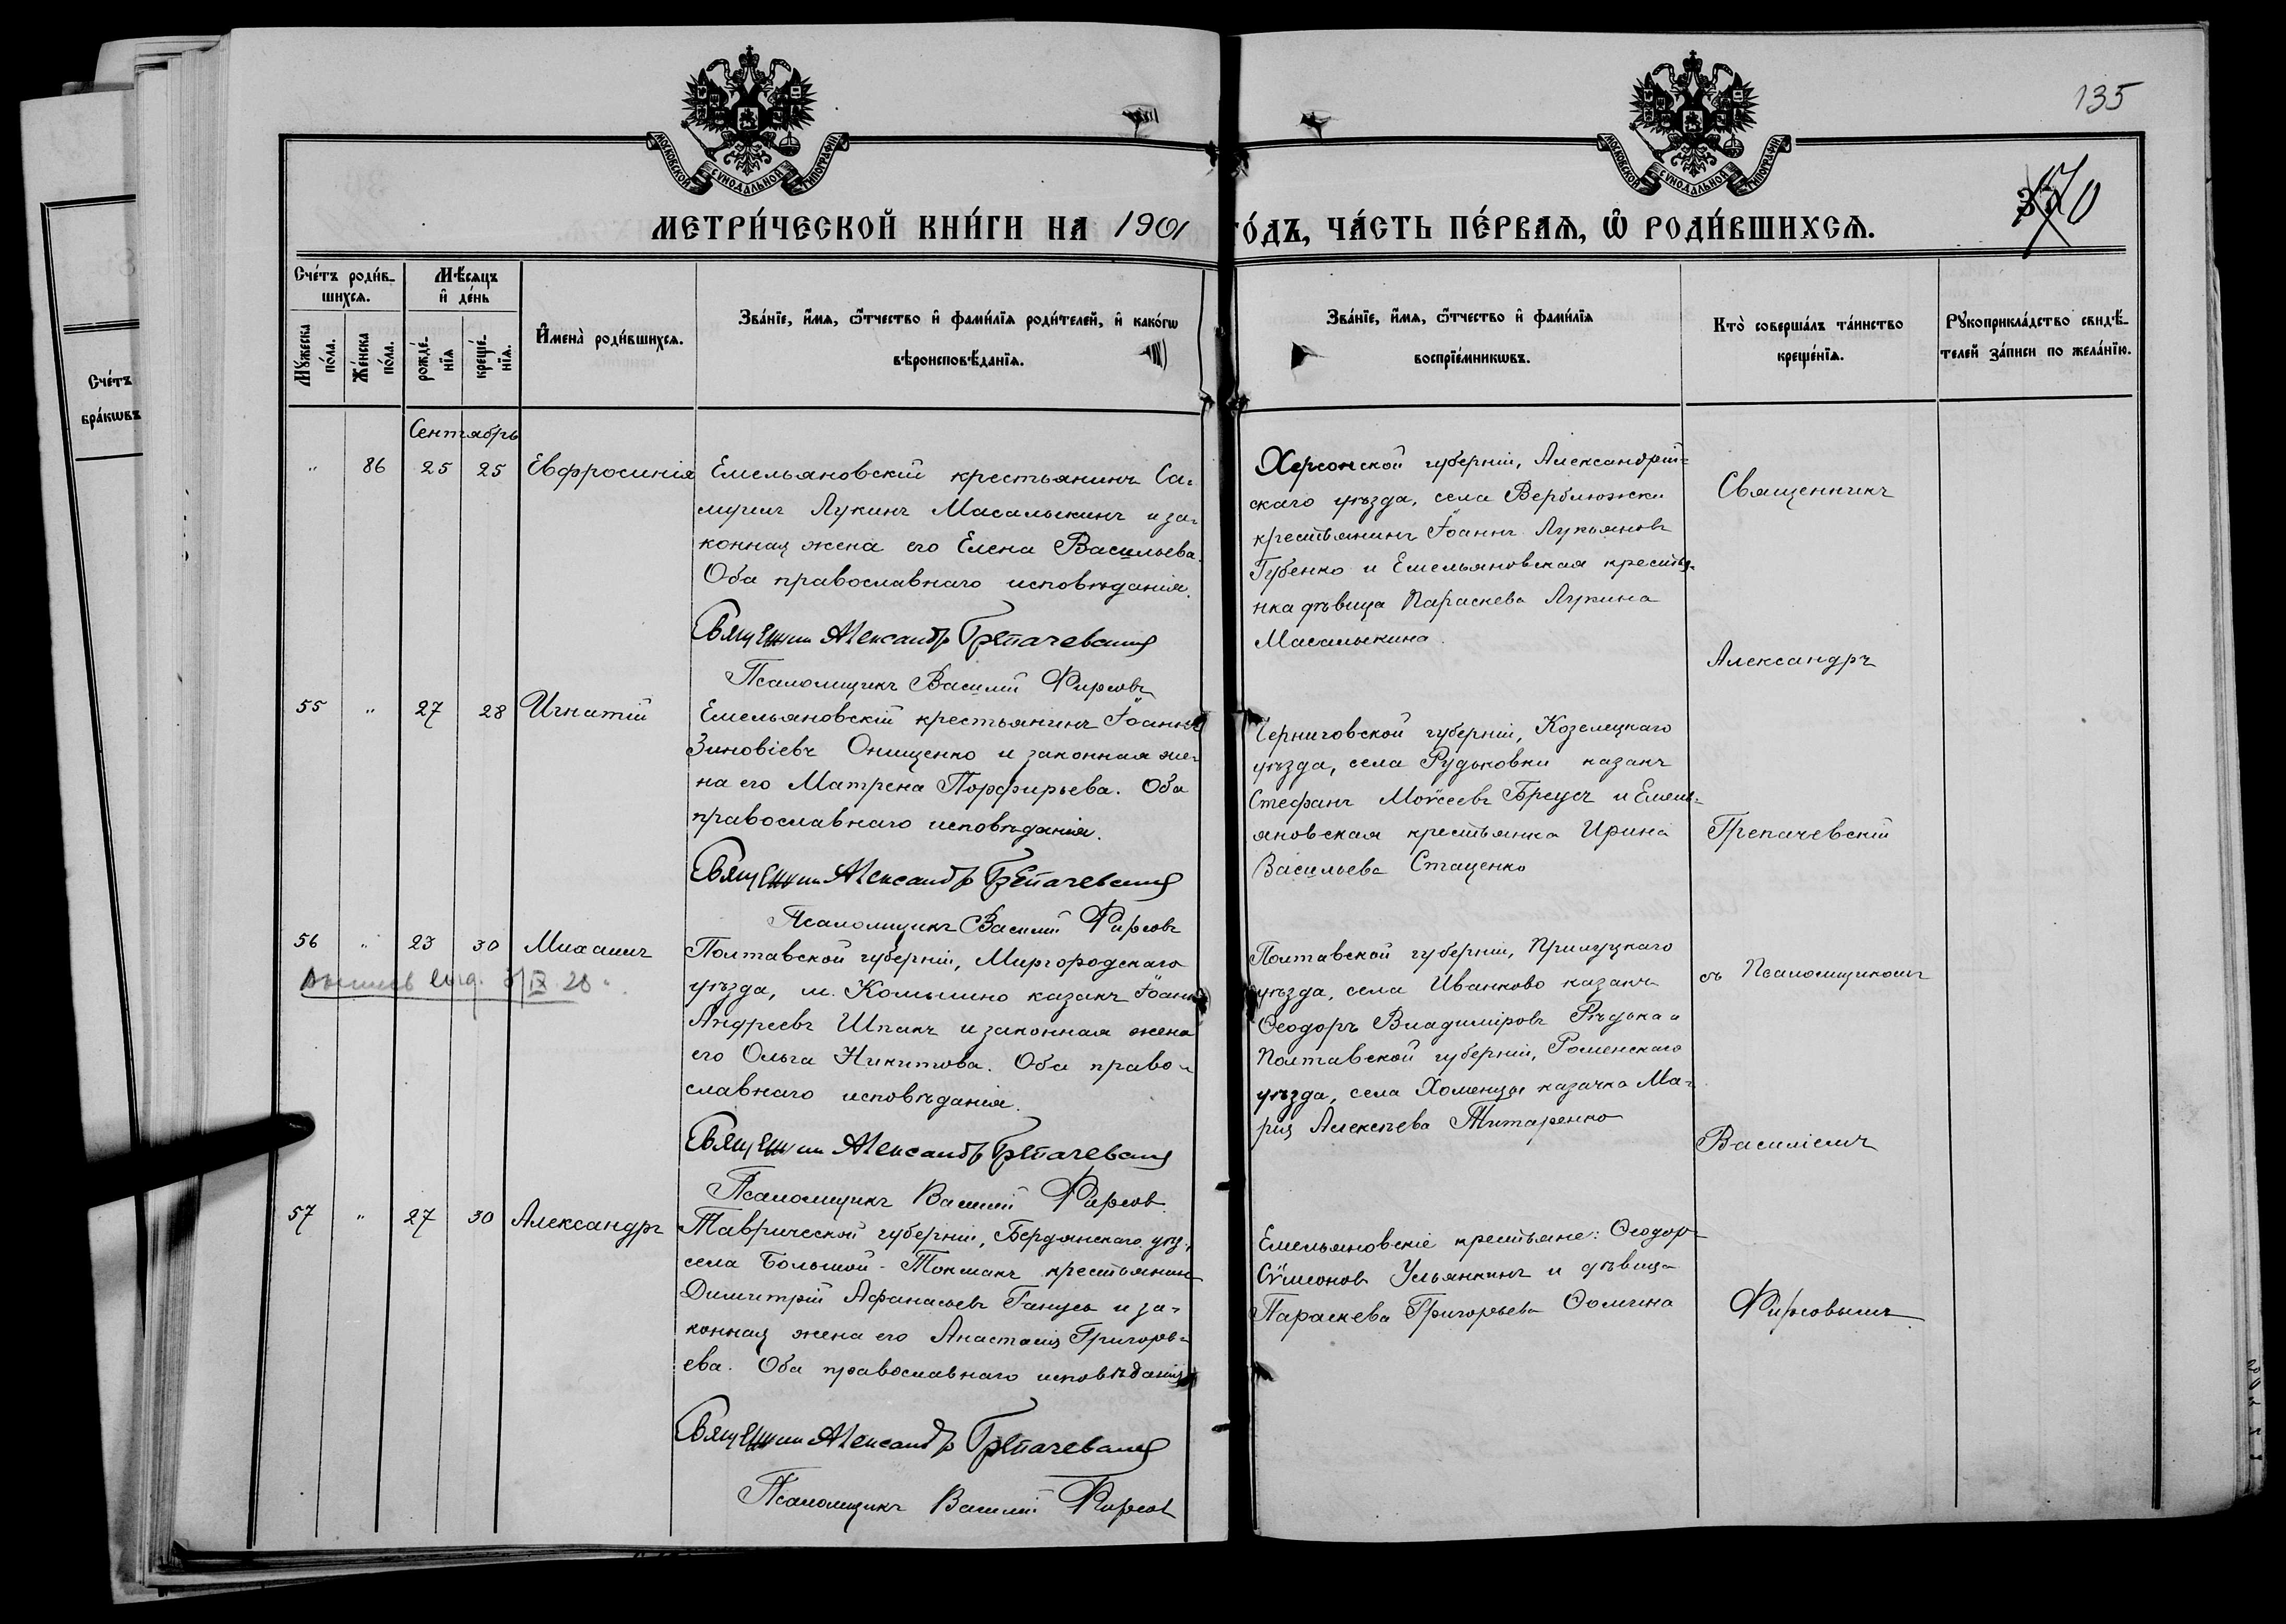 135
МОСКОВСКОЙ СѴНОДАЛЬНОЙ ТИПОГРАФІИ
МОСКОВСКОЙ СѴНОДАЛЬНОЙ ТИПОГРАФІИ
МЕТРИ́ЧЕСКОЙ КНИ́ГИ НА 1901 ГО́ДЪ, ЧА́СТЬ ПЕ́РВАЯ, Ѿ РОДИ́ВШИХСЯ.
Сче́тъ роди́в-
шихся.
Мѣ́сяцъ
и҆ де́нь
Мꙋ́жеска по́ла.
Же́нска по́ла.
рожде́-
нїя
креще́-
нїя.
И҆мена̀ роди́вшихся.
Зва́нїе, и҆́мя, ѻ҆́тчество и҆ фами́лїя роди́телей, и҆ како́гѡ
вѣроисповѣ́данїя.
Зва́нїе, и҆́мя, ѻ҆́тчество и҆ фами́лїя
воспрїе́мникѡвъ.
Кто̀ соверша́лъ та́инство
креще́нїя.
Рꙋкоприкла́дство свидѣ́-
телей за́писи по жела́нїю.
Сче́тъ
бра́кѡвъ
Сентябрь
" 86 25 25 Евфросинія
Емельяновскій крестьянинъ Са-
муилъ Лукинъ Масалыкинъ и за-
конная жена его Елена Васильева.
Оба православнаго исповѣданія.
Священникъ Александръ Грепачевскій
Псаломщикъ Василій Фирсовъ
Херсонской губерніи, Александрій-
скаго уѣзда, села Верблюжски
крестьянинъ Іоаннъ Лукьяновъ
Губенко и Емельяновская крестья-
нка дѣвица Параскева Лукина
Масалыкина.
55 " 27 28 Игнатій
Емельяновскій крестьянинъ Іоаннъ
Зиновіевъ Онищенко и законная же-
на его Матрена Порфирьева. Оба
православнаго исповѣданія.
Священникъ Александръ Грепачевскій
Псаломщикъ Василій Фирсовъ
Черниговской губерніи, Козелецкаго
уѣзда, села Рудьковки казакъ
Стефанъ Моѵсеевъ Бреусъ и Емель-
яновская крестьянка Ирина
Васильева Стаценко
56 " 23 30 Михаилъ
Полтавской губерніи, Миргородскаго
уѣзда, м. Комышно казакъ Іоаннъ
Андреевъ Шпакъ и законная жена
его Ольга Никитова. Оба право-
славнаго исповѣданія.
Священникъ Александръ Грепачевскій
Псаломщикъ Василій Фирсов
Полтавской губерніи, Прилуцкаго
уѣзда, села Иванково казакъ
Ѳеодоръ Владиміровъ Рѣдька и
Полтавской губерніи, Роменскаго
уѣзда, села Хоменцы казачка Ма-
рія Алексѣева Титаренко
57 " 27 30 Александръ
Таврической губерніи, Бердянскаго уѣз.,
села Большой-Токмакъ крестьянинъ
Димитрій Афанасьевъ Ганусь и за-
конная жена его Анастасія Григорь-
ева. Оба православнаго исповѣданія
Священникъ Александръ Грепачевскій
Псаломщикъ Василій Фирсов
Емельяновскіе крестьяне: Ѳеодоръ
Сѵмеоновъ Ульянкинъ и дѣвица
Параскева Григорьева Ѳомина
Священникъ
Александръ
Грепачевскій
съ Псаломщикомъ
Василіемъ
Фирсовымъ